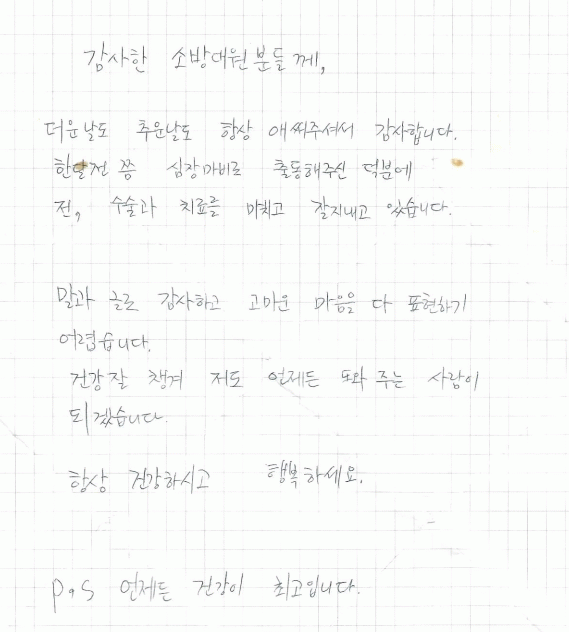 감사한 소방대원분들께,
더운날도 추운날도 항상 애써주셔서 감사합니다.
한달전 쯤 심장마비로 출동해주신 덕분에
전, 수술과 치료를 마치고 잘지내고 있습니다.
말과 글로 감사하고 고마운 마음을 다 표현하기
어렵습니다.
건강 잘 챙겨 저도 언제든 도와 주는 사람이
되겠습니다.
항상 건강하시고 행복하세요.
P.S 언제든 건강이 최고입니다.